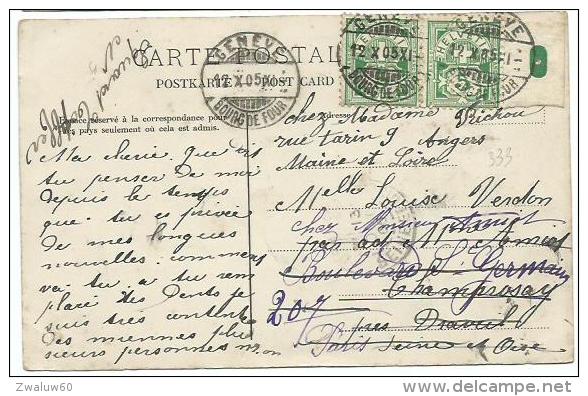 CARTE POSTAL
POSTKARTE POST CARD
GENÈVE
12 X 05 XI
BOURG DE FOUR
GENÈVE
12 X 05 XI
BOURG DE FOUR
GENÈVE
12 X 05 XI
HELVETIA
Espace réservé à la correspondance pour
les pays seulement où cela est admis.
Adresse
Ma cherie que dis
tu penser de moi
depuis le temps
que tu es privée
de mes longues
nouvelles. comment
vai tu, a tu rem
placé des dents je
suis très contente
des miennes plus
sieurs personnes m'on
chez Madame Richou
rue tarin 9 Angers
Maine et Loire
333
Melle Louise Verdon
chez Monsieur
Boulevard St Germain
207
Champrosay
près Draveil
Paris Seine et Oise
Zwaluw60
www.delcampe.net